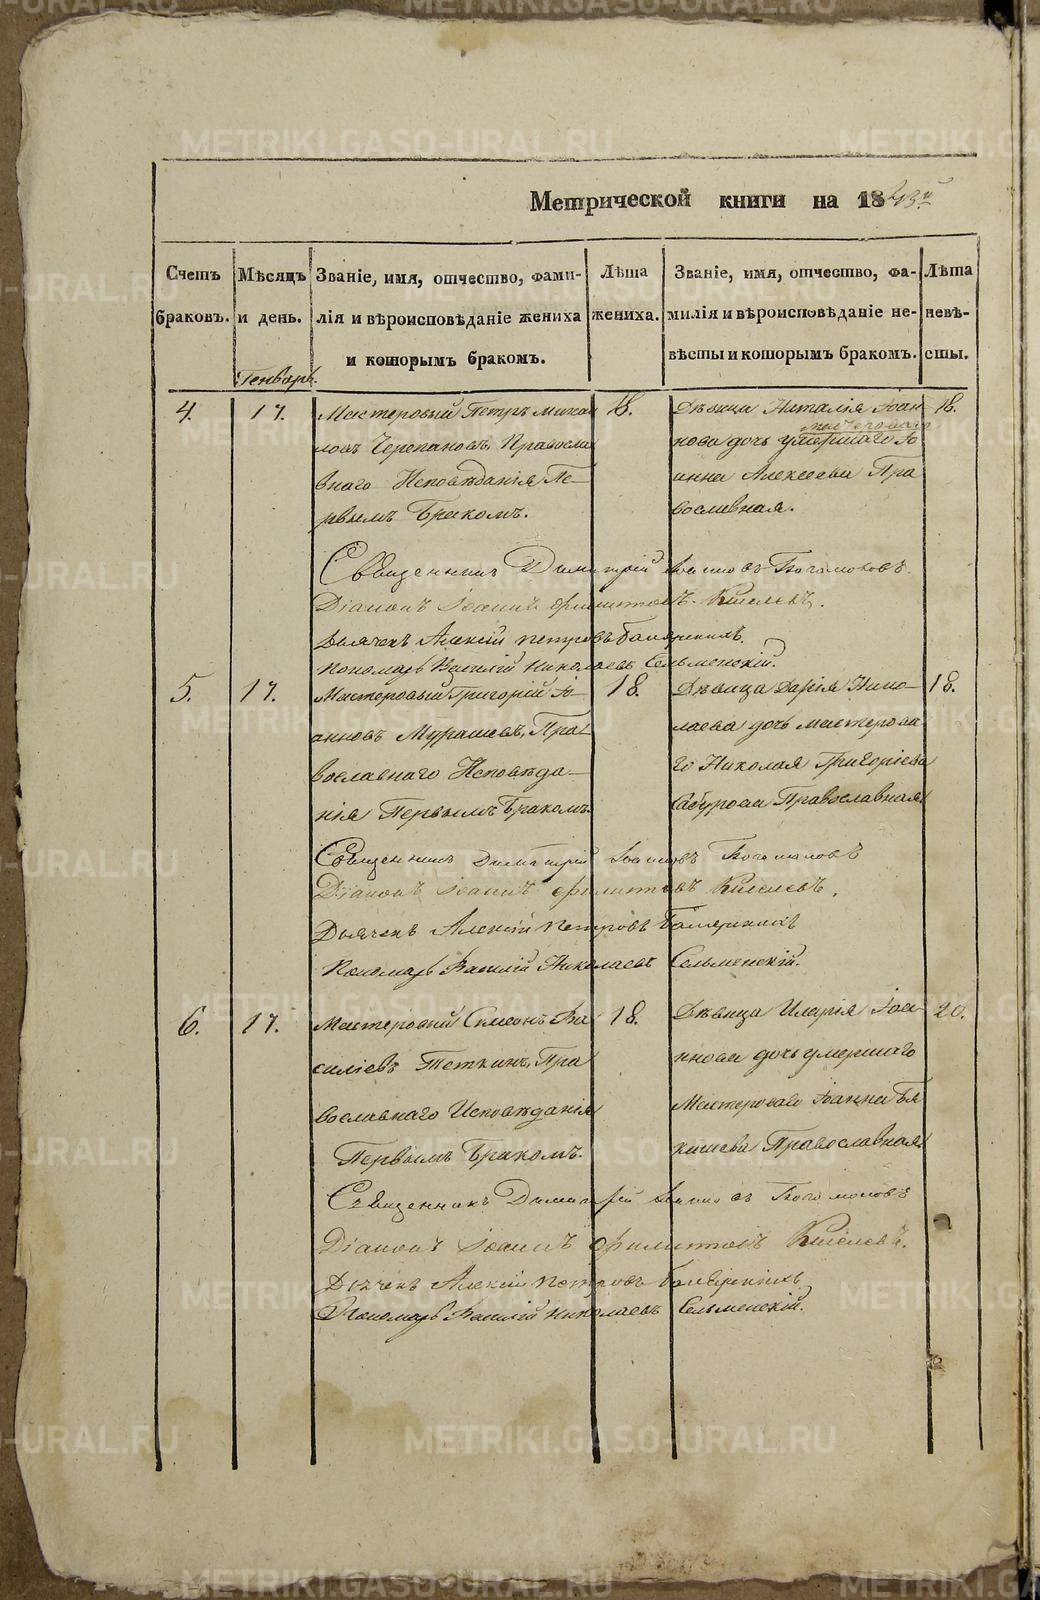 Метрической книги на 1843й
Счетъ браковъ.
Мѣсяцъ и день.
Званіе, имя, отчество, фамилія и вѣроисповѣданіе жениха и которымъ бракомъ.
Лѣта жениха.
Званіе, имя, отчество, фамилія и вѣроисповѣданіе невѣсты и которымъ бракомъ.
Лѣта невѣсты.
Генварь.
4.
17.
Мастеровый Петръ Михаи
ловъ Черепановъ, Правосла
внаго Исповѣданія Пе-
рвымъ Бракомъ.
18.
Дѣвица Наталія Іоан-
мастероваго
нова дочь умершаго Іо
анна Алексеева Пра
вославная.
18.
Священникъ Димитрій Іоанновъ Богомоловъ.
Діаконъ Іоаннъ Филиповъ Киселевъ.
Дьячекъ Алексій Петровъ
Пономарь Василій Николаевъ Сельменскій.
5.
17.
Мастеровый Григорій Іо-
анновъ Мурашевъ, Пра
вославнаго Исповѣда-
нія Первымъ Бракомъ.
18.
Дѣвица Дарія Нико-
лаева дочь мастерова
го Николая Григоріева
Сабурова Православная
18.
Священникъ Димитрій Іоанновъ Богомоловъ
Діаконъ Іоаннъ Филиповъ Киселевъ.
Дьячекъ Алексій Петровъ
Пономарь Василій Николаевъ Сельменскій.
6.
17.
Мастеровый Симеонъ Ва
силіевъ Теткинъ, Пра
вославнаго Исповѣданія
Первымъ Бракомъ.
18.
Дѣвица Иларія Іоа-
ннова дочь умершаго
Мастероваго Іоанна Бя
кишева Православная
20.
Священникъ Димитрій Іоанновъ Богомоловъ
Діаконъ Іоаннъ Филиповъ Киселевъ.
Дьячекъ Алексій Петровъ
Пономарь Василій Николаевъ Сельменскій.
METRIKI.GASO-URAL.RU